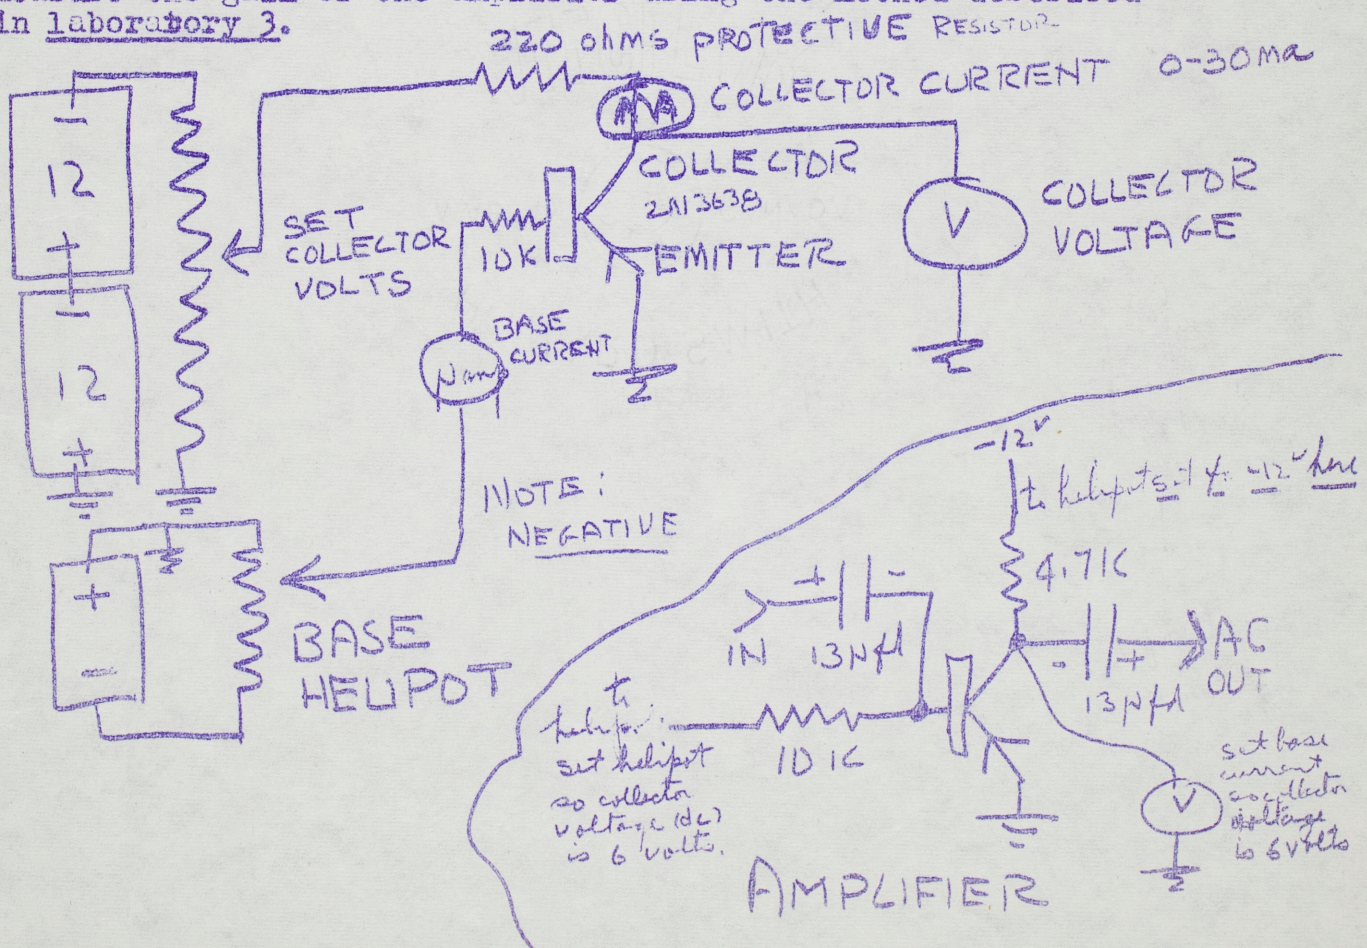 in laboratory 3.
220 ohms PROTECTIVE RESISTOR
COLLECTOR CURRENT 0-30ma
MA
−
12
+
COLLECTOR
2N3638
EMITTER
10K
SET
COLLECTOR
VOLTS
V
COLLECTOR
VOLTAGE
−
12
+
BASE
CURRENT
µam
NOTE:
NEGATIVE
+
−
BASE
HELIPOT
-12V
to helipot set -12V here
4.7K
+ -
IN 13µfd
- +
AC
OUT
13µfd
to
helipot
set helipot
so collector
voltage (dc)
is 6 volts.
10K
V
set base
current
so collector
voltage
is 6 volts
AMPLIFIER